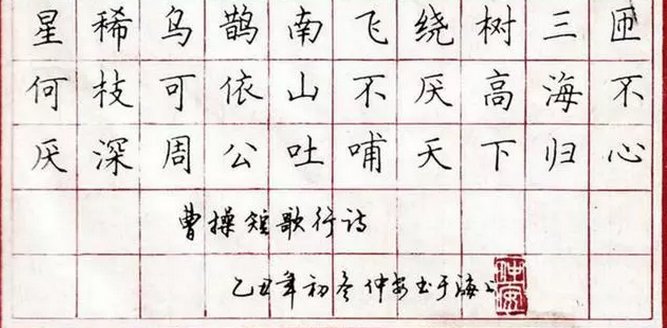 星稀乌鹊南飞绕树三匝
何枝可依山不厌高海不
厌深周公吐哺天下归心
曹操短歌行诗
乙丑年初冬仲安书于海上
仲安